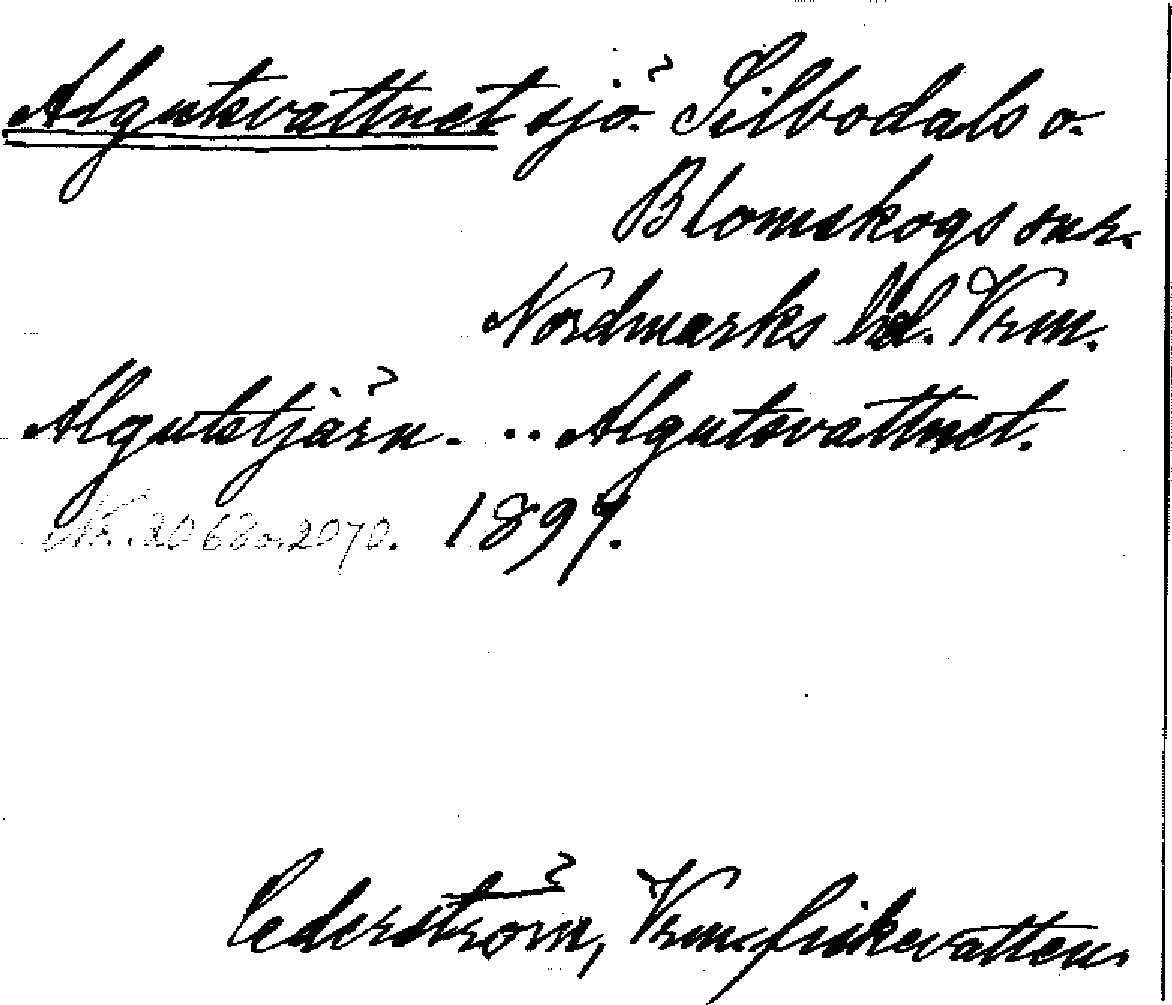 Algutsvattnet sjö. Silbodals o.
Blomskogs snr.
Nordmarks hd. Vrm.
Algutstjärn. .. Algutsvattnet.
Nr. 2068 o. 2070. 1897.
Cederström, Vrm. fiskevatten.